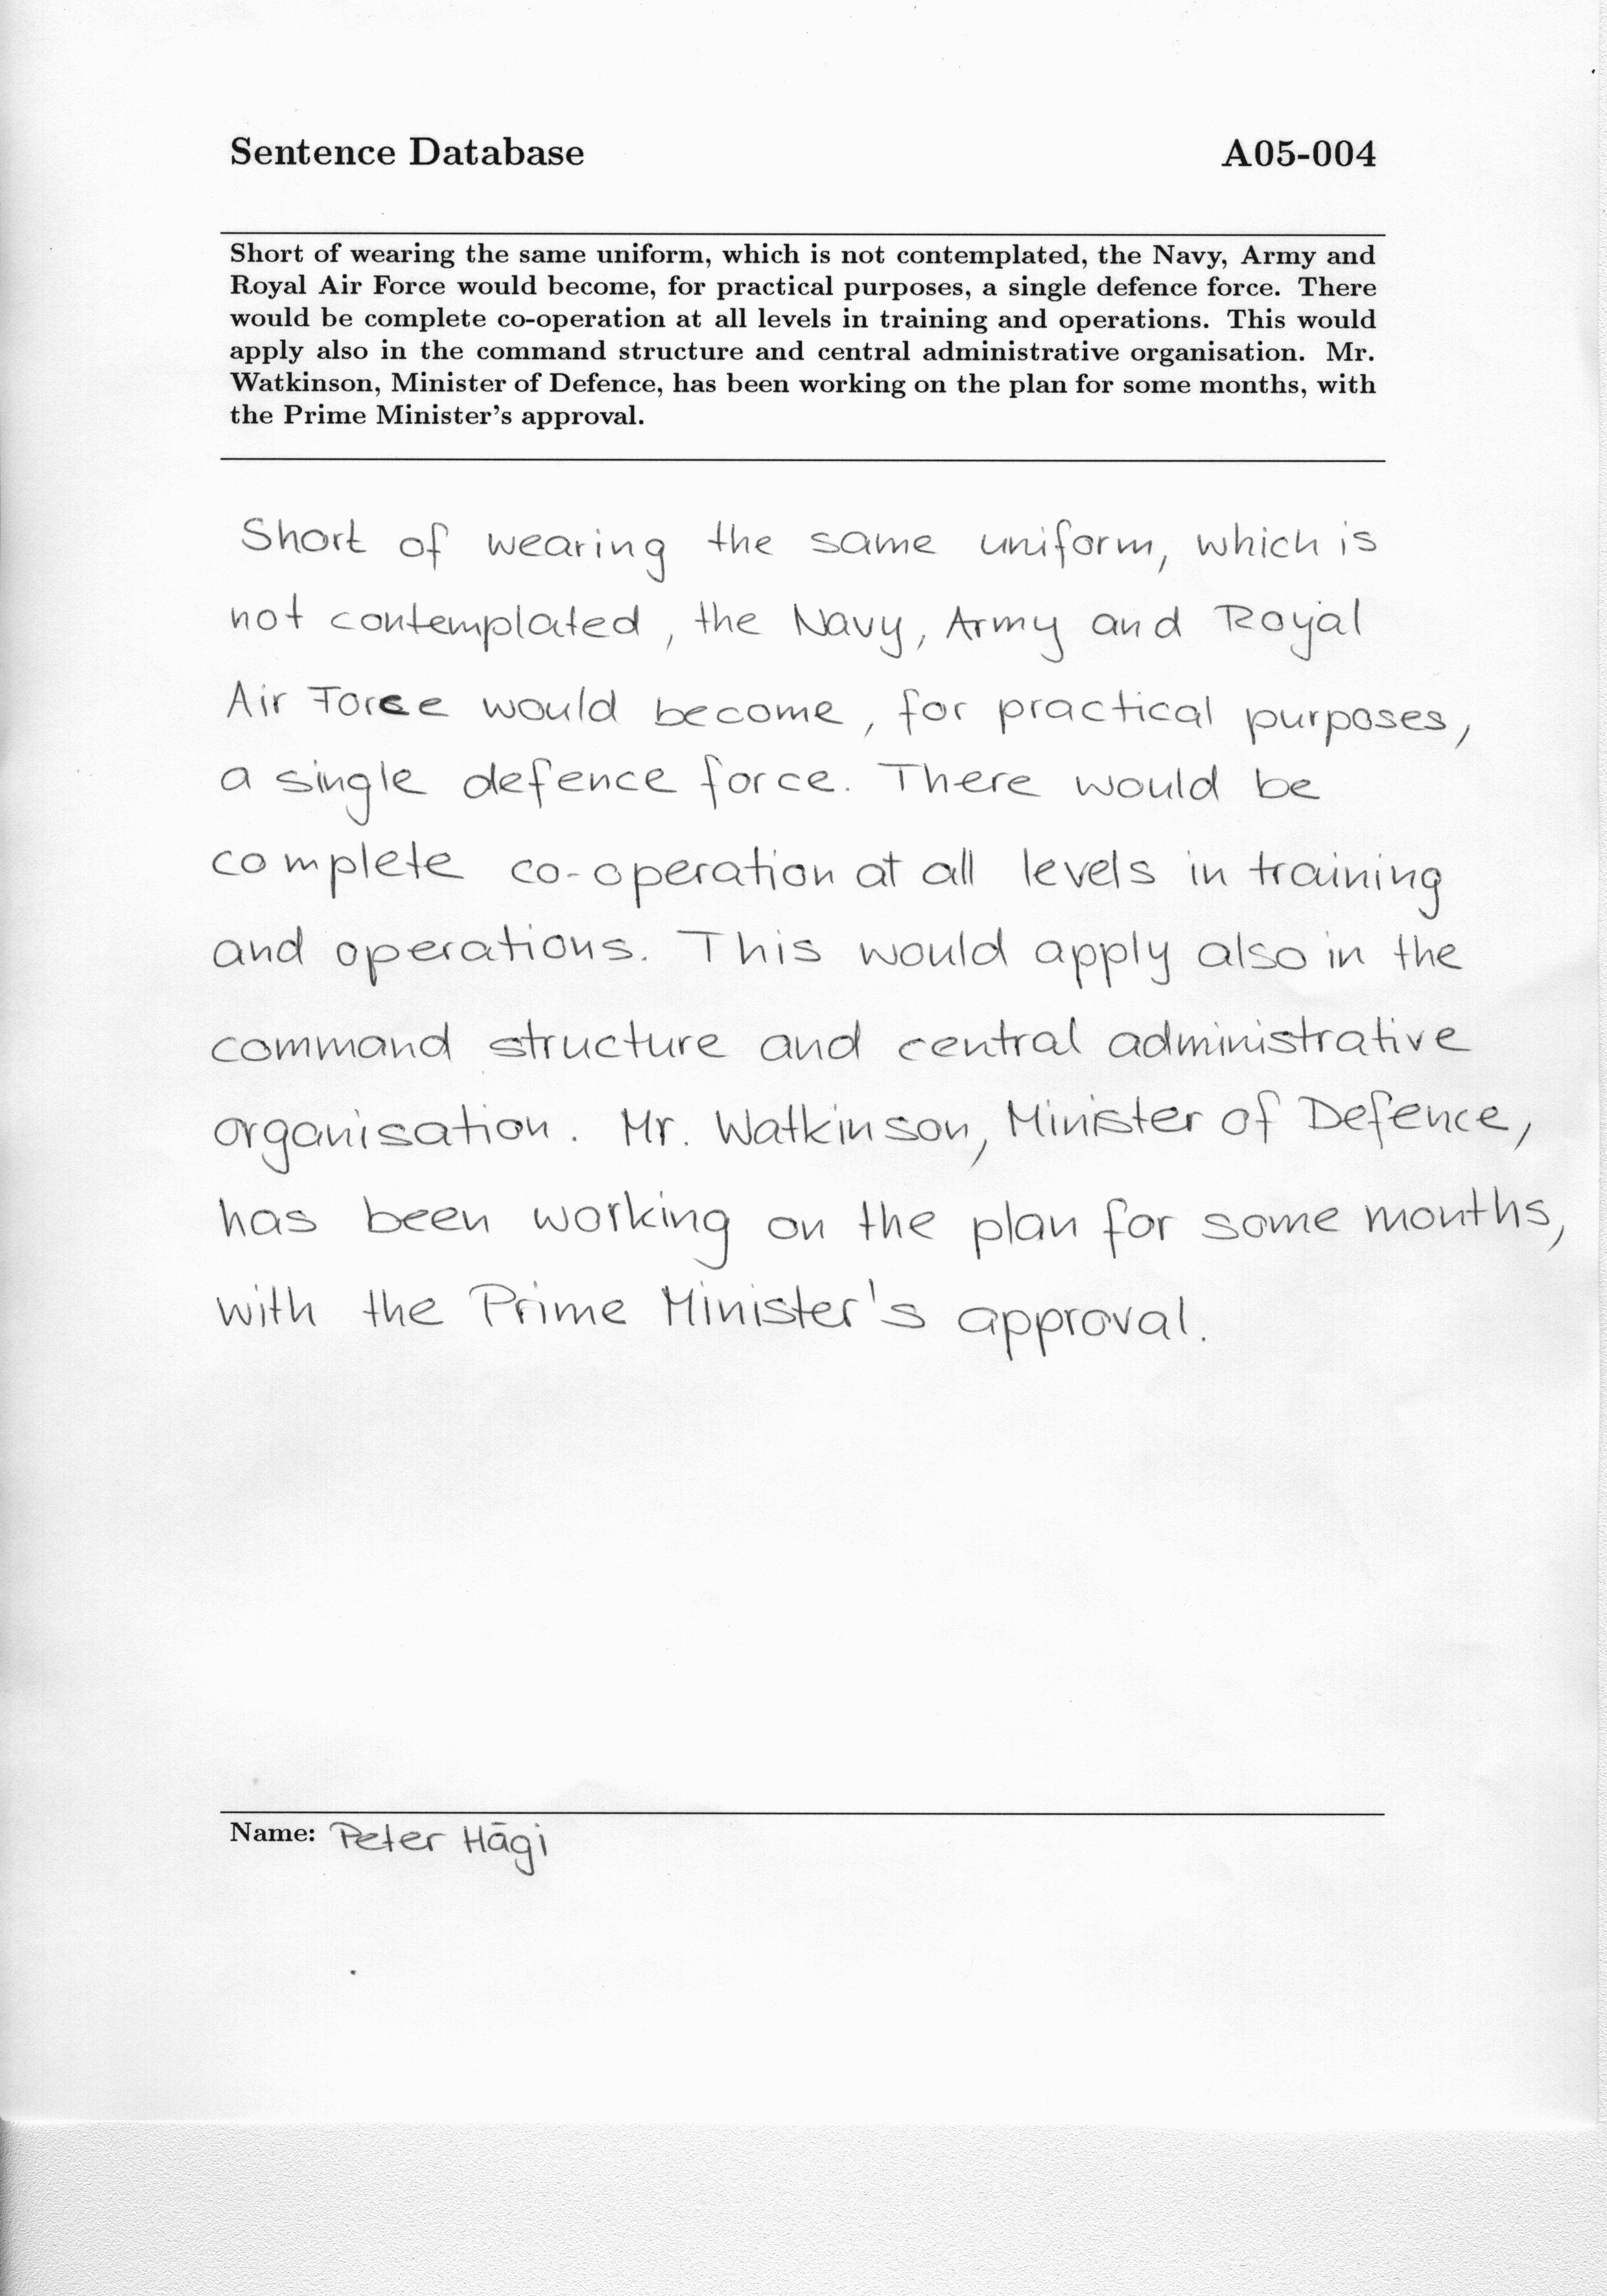 Sentence Database A05-004
Short of wearing the same uniform, which is not contemplated, the Navy, Army and
Royal Air Force would become, for practical purposes, a single defence force. There
would be complete co-operation at all levels in training and operations. This would
apply also in the command structure and central administrative organisation. Mr.
Watkinson, Minister of Defence, has been working on the plan for some months, with
the Prime Minister's approval.
Short of wearing the same uniform, which is
not contemplated, the Navy, Army and Royal
Air Force would become, for practical purposes,
a single defence force. There would be
complete co-operation at all levels in training
and operations. This would apply also in the
command structure and central administrative
organisation. Mr. Watkinson, Minister of Defence,
has been working on the plan for some months,
with the Prime Minister's approval.
Name: Peter Hägi